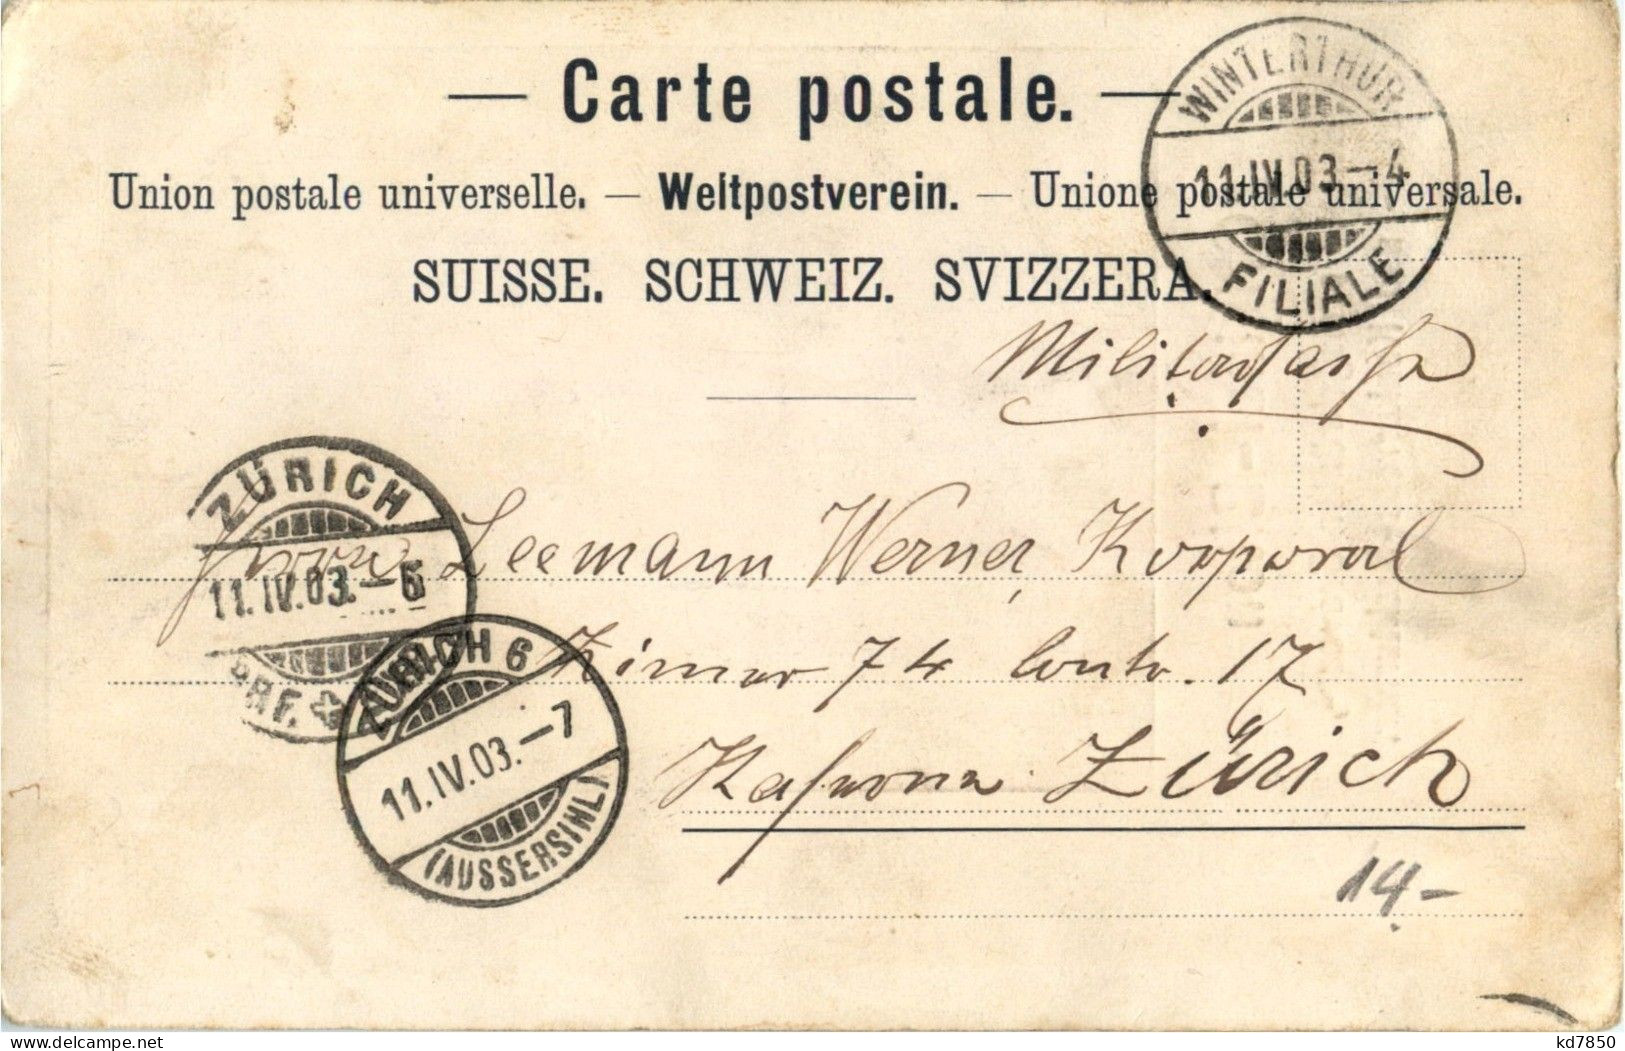 Carte postale.
Union postale universelle. — Weltpostverein. — Unione postale universale.
SUISSE. SCHWEIZ. SVIZZERA.
WINTERTHUR
11.IV.03–4
FILIALE
Militärsache
ZÜRICH
11.IV.03.–6
BRF.
Herrn Leemann Werner, Korporal
Zimer 74 Contr. 17
Kaserne Zürich
ZÜRICH 6
11.IV.03.–7
(AUSSERSIHL)
14-
delcampe.net
kd7850